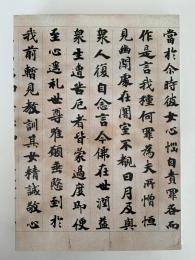 當於尒時彼女心惱自責罪咎而
作是言我種何罪為夫所憎恒
見幽閉處在闇室不覩日月及與
衆人復自念言今佛在世潤益
衆生遭苦厄者皆蒙過度即便
至心遙礼世尊唯願垂愍到於
我前暫見教訓其女精誠敬心